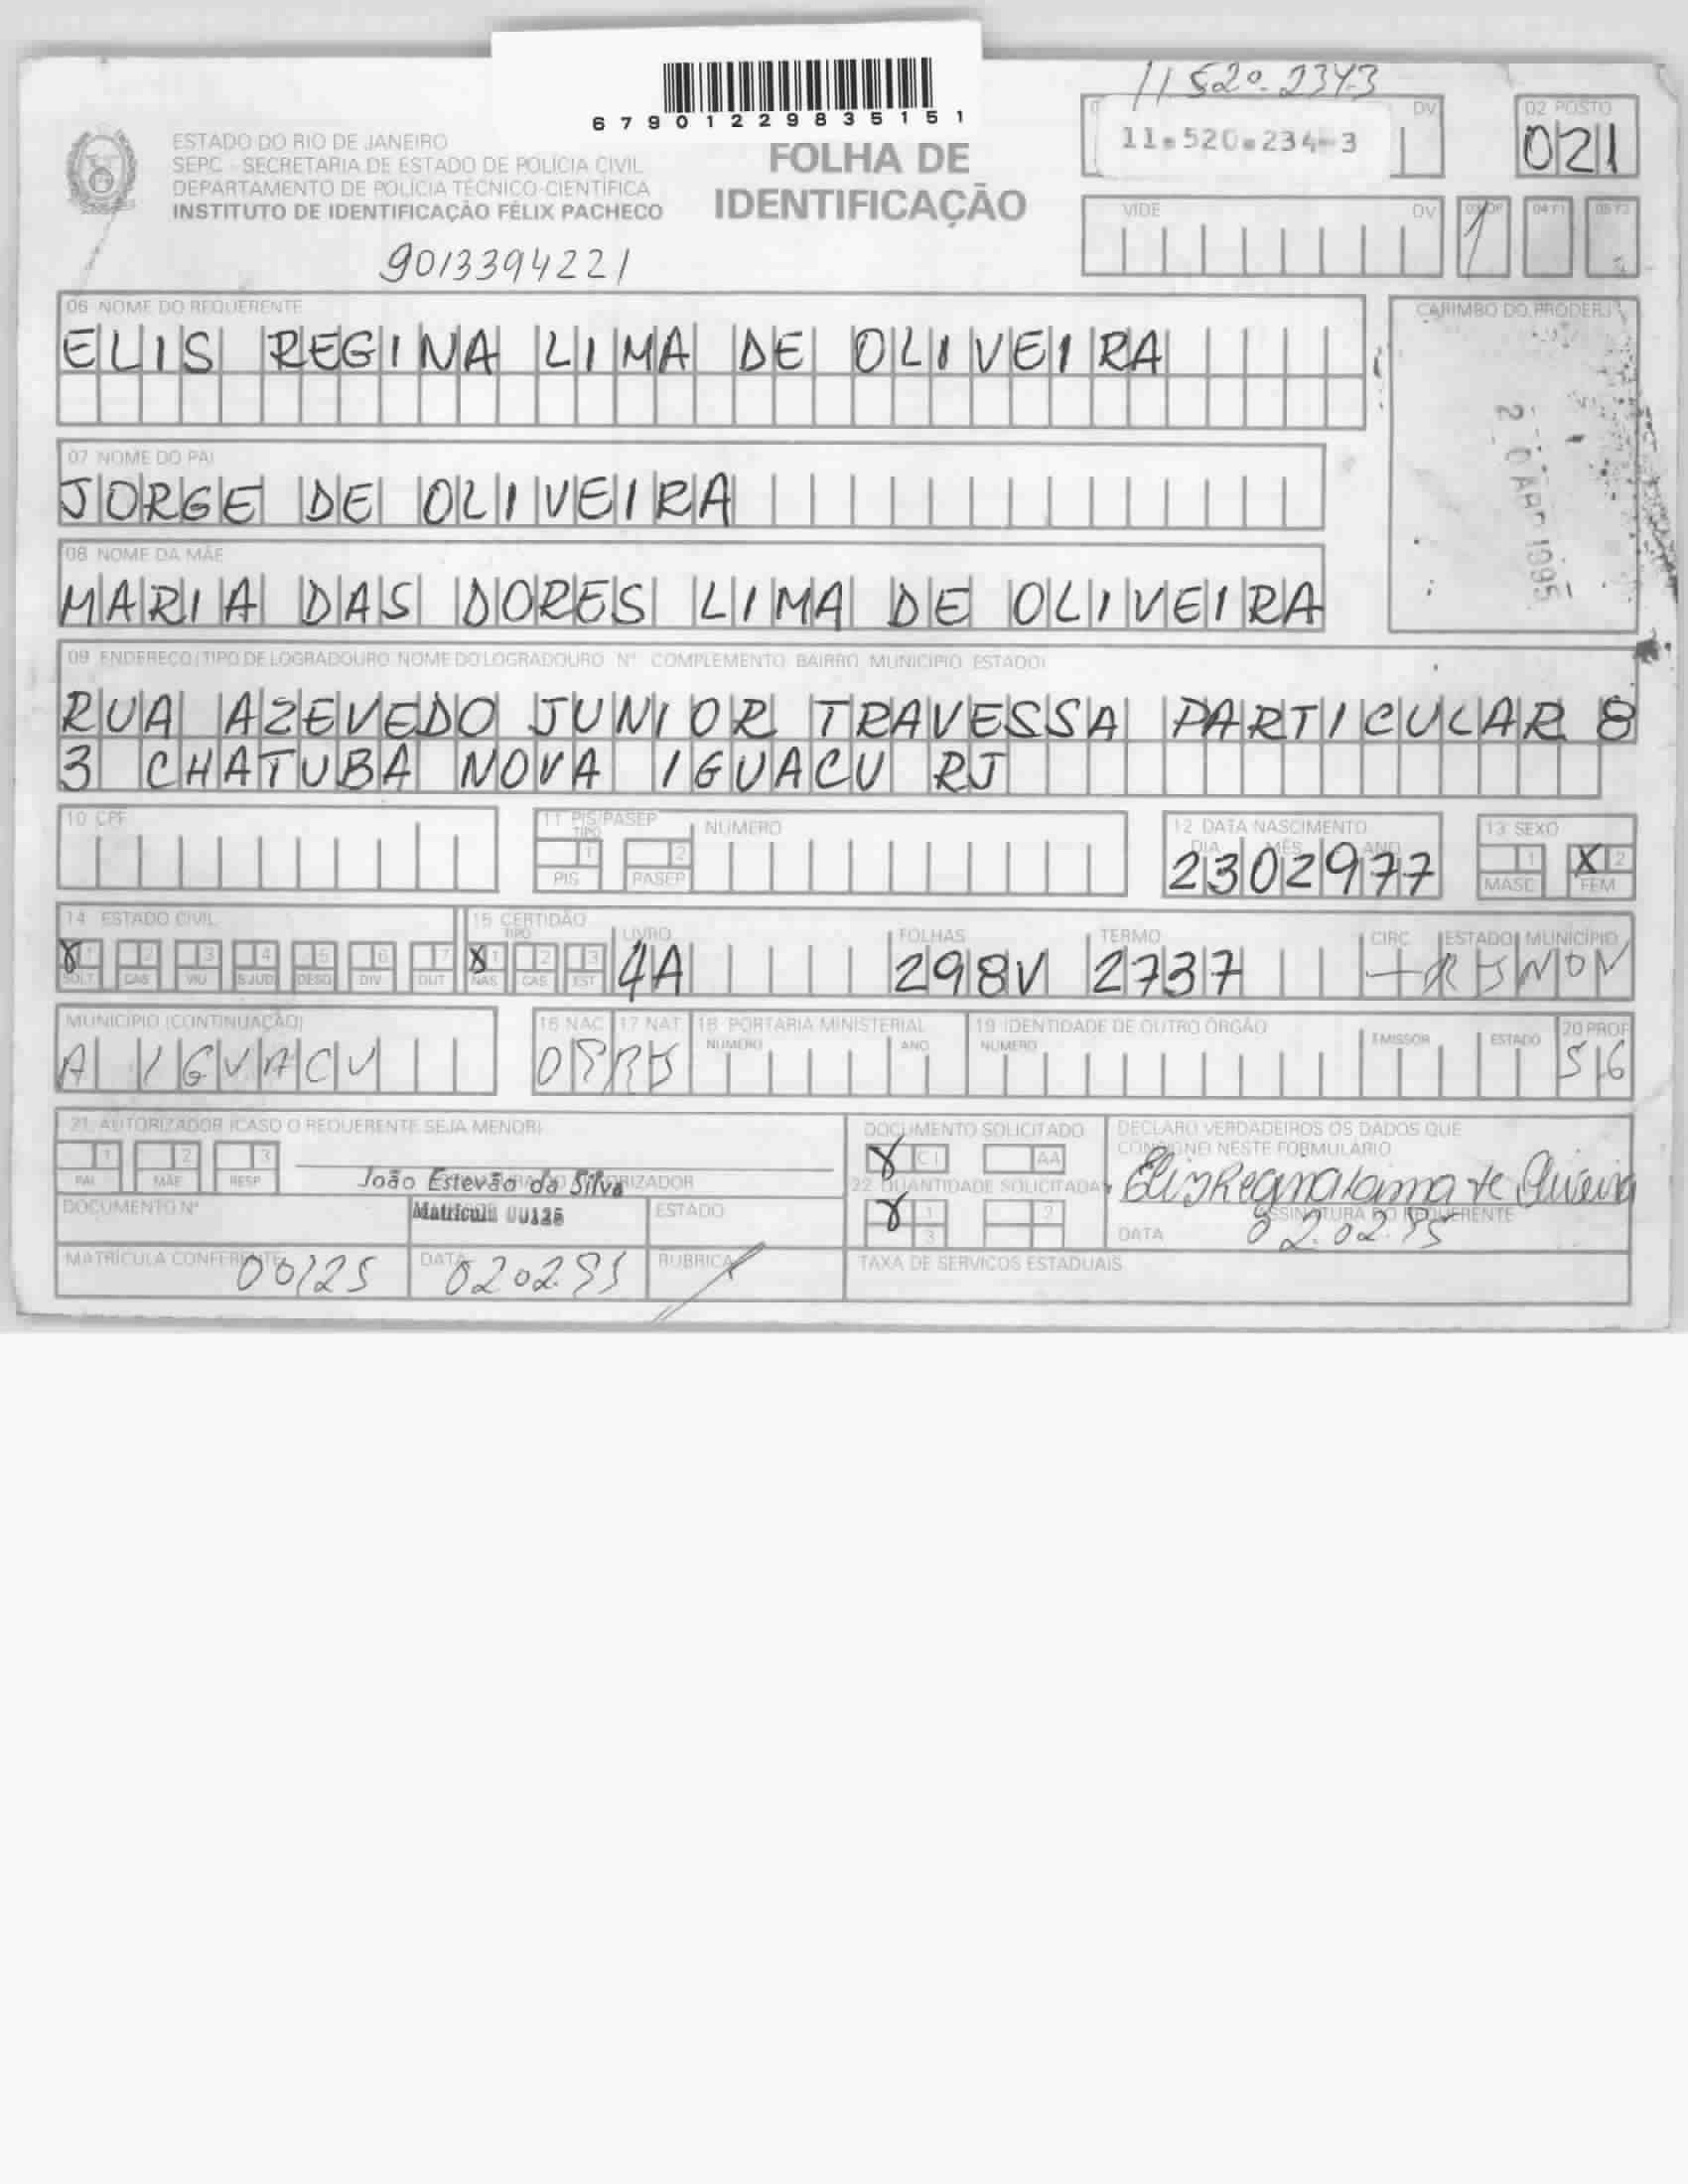 67901229835151
11520.234-3
ESTADO DO RIO DE JANEIRO
SEPC - SECRETARIA DE ESTADO DE POLÍCIA CIVIL
DEPARTAMENTO DE POLÍCIA TÉCNICO-CIENTÍFICA
INSTITUTO DE IDENTIFICAÇÃO FÉLIX PACHECO
FOLHA DE
IDENTIFICAÇÃO
11.520.234-3
DV
02 POSTO
021
VIDE
DV
03 OP
1
04 F1
05 F2
9013394221
06 NOME DO REQUERENTE
ELIS REGINA LIMA DE OLIVEIRA
CARIMBO DO PRODERJ
1995
07 NOME DO PAI
JORGE DE OLIVEIRA
08 NOME DA MÃE
MARIA DAS DORES LIMA DE OLIVEIRA
09 ENDEREÇO (TIPO DE LOGRADOURO NOME DO LOGRADOURO Nº COMPLEMENTO BAIRRO MUNICÍPIO ESTADO)
RUA AZEVEDO JUNIOR TRAVESSA PARTICULAR 8
3 CHATUBA NOVA IGUACU RJ
10 CPF
11 PIS/PASEP
TIPO
NÚMERO
1
2
PIS
PASEP
12 DATA NASCIMENTO
DIA MÊS ANO
2302977
13 SEXO
1
X 2
MASC
FEM
14 ESTADO CIVIL
X 1 2 3 4 5 6 7
SOLT CAS VIU S.JUD DESQ DIV OUT
15 CERTIDÃO
TIPO
X 1 2 3
NAS CAS EST
LIVRO
4A
FOLHAS
298V
TERMO
2737
CIRC
—
ESTADO
RJ
MUNICÍPIO
NOV
MUNICÍPIO (CONTINUAÇÃO)
A IGUACU
16 NAC
17 NAT
RJ
18 PORTARIA MINISTERIAL
NÚMERO
ANO
19 IDENTIDADE DE OUTRO ÓRGÃO
NÚMERO
EMISSOR
ESTADO
20 PROF
516
21 AUTORIZADOR (CASO O REQUERENTE SEJA MENOR)
1 2 3
PAI MÃE RESP
João Estevão da Silva
Matrícul. 00125
DOCUMENTO Nº
ESTADO
MATRÍCULA CONFERENTE
00125
DATA
020295
RUBRICA
DOCUMENTO SOLICITADO
X CI
AA
22 QUANTIDADE SOLICITADA
X 1 2
3
DECLARO VERDADEIROS OS DADOS QUE
CONSIGNEI NESTE FORMULÁRIO
Elis Regina Lima de Oliveira
ASSINATURA DO REQUERENTE
DATA
02.02.95
TAXA DE SERVIÇOS ESTADUAIS